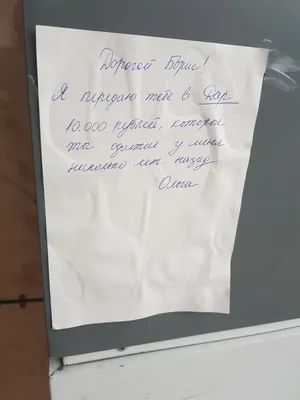 Дорогой Борис!
Я передаю тебе в Дар
10.000 рублей, которые
ты должен у меня
несколько лет назад
Ольга